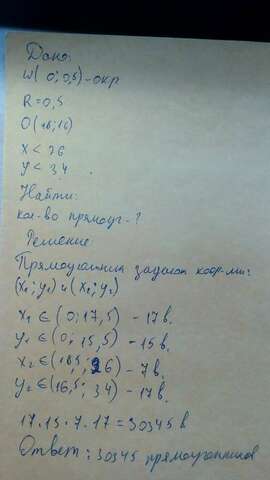 Дано:
W(0; 0,5) - окр
R = 0,5
O(18; 16)
x < 26
y < 34
Найти:
кол-во прямоуг - ?
Решение:
Прямоугольник задают коор-ми:
(x₁; y₁) и (x₂; y₂)
x₁ ∈ (0; 17,5) - 17 в.
y₁ ∈ (0; 15,5) - 15 в.
x₂ ∈ (18,5; 26) - 7 в.
y₂ ∈ (16,5; 34) - 17 в.
17 · 15 · 7 · 17 = 30345 в
Ответ: 30345 прямоугольников